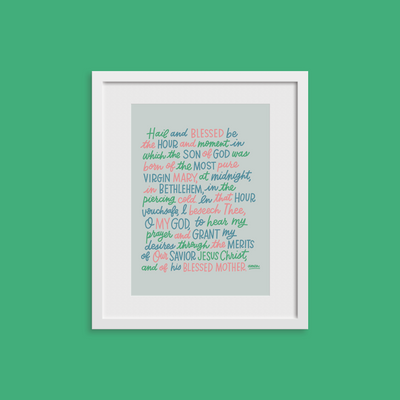 Hail and BLESSED be
the HOUR and moment in
which the SON of GOD was
born of the MOST pure
VIRGIN MARY, at midnight,
in BETHLEHEM, in the
piercing cold In that HOUR
vouchsafe, I beseech Thee,
O MY GOD, to hear my
prayer and GRANT my
desires through the MERITS
of Our SAVIOR JESUS CHRIST,
and of his BLESSED MOTHER.